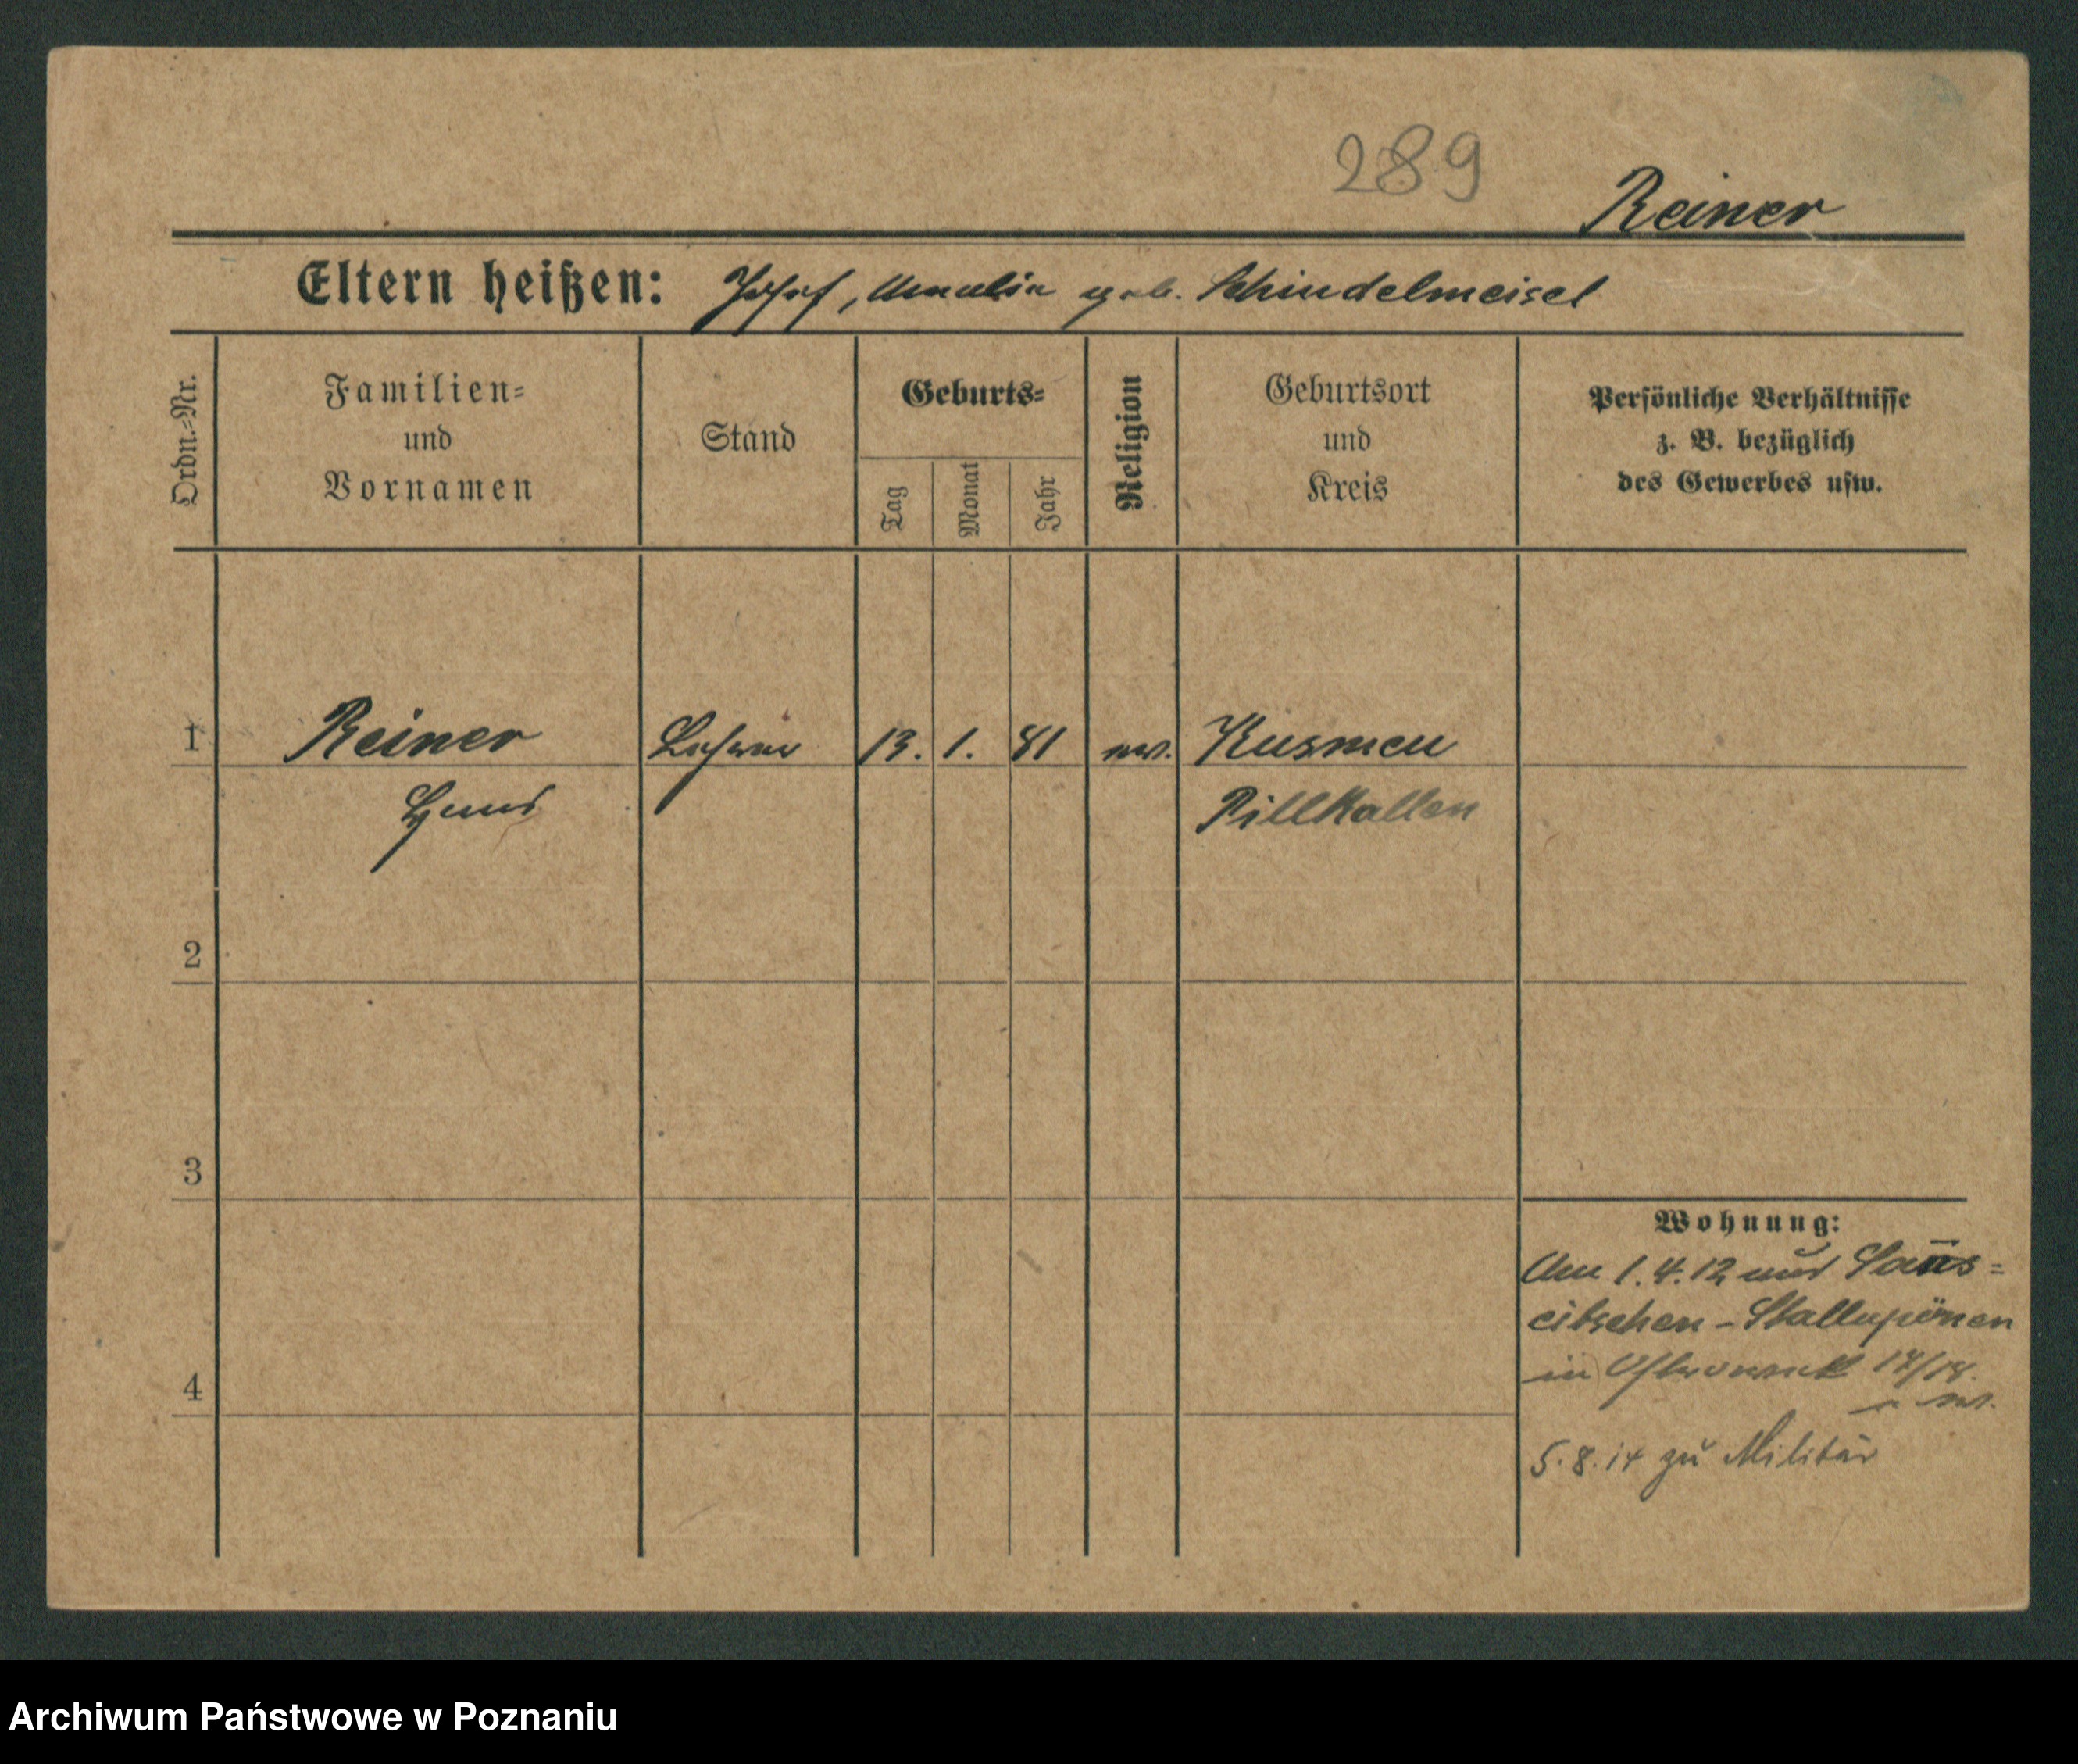 289
Reiner
Eltern heißen: Josef, Amalie geb. Schindelmeisel
Ordn.=Nr.
Familien=
und
Vornamen
Stand
Geburts=
Tag
Monat
Jahr
Religion
Geburtsort
und
Kreis
Persönliche Verhältnisse
z. B. bezüglich
des Gewerbes usw.
1 Reiner Lehrer 13. 1. 81 ev. Kusmen
Hans Pillkallen
2
3
4
Wohnung:
Am 1.4.12 aus Saus=
eitschen - Stallupönen
in
5.8.14 zu Militär
Archiwum Państwowe w Poznaniu